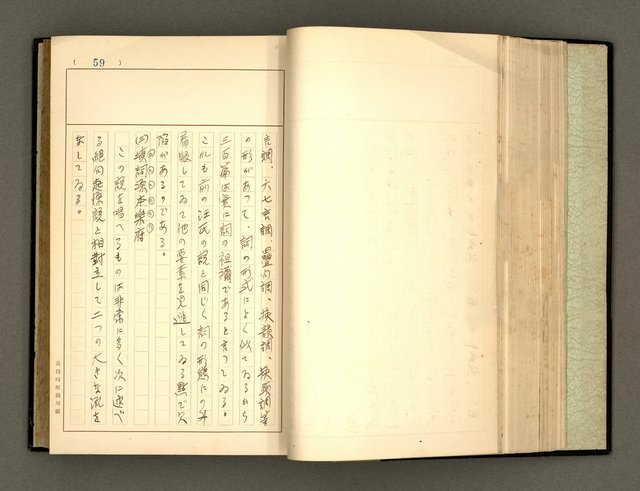 ( 59 )
言調、六七言調、疊句調、換韻調、換頭調等
の形があつて、詞の形式によく似てゐるから
三百篇は實に詞の祖禰であると言つてゐる。
これも前の汪氏の說と同じく詞の形態にのみ
着眼してゐて他の要素を見逃してゐる點で欠
陷があるのである。
四填詞源本樂府
この說を唱へるものは非常に多く次に述べ
る絕句起原說と相對立して二つの大きな流を
なしてゐる。
黃得時原稿用紙